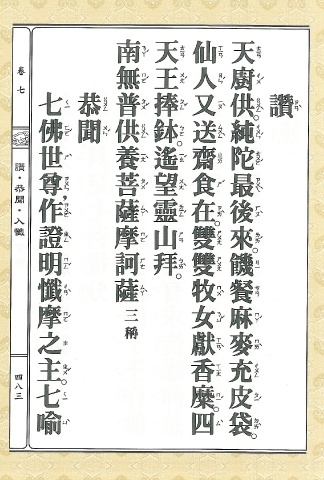 讚
天廚供。純陀最後來。饑餐麻麥充皮袋。
仙人又送齋食在。雙雙牧女獻香糜。四
天王捧鉢。遙望靈山拜。
南無普供養菩薩摩訶薩 三稱
恭聞
七佛世尊作證明懺摩之主。七喻
卷七
讚・恭聞・入懺
四八三